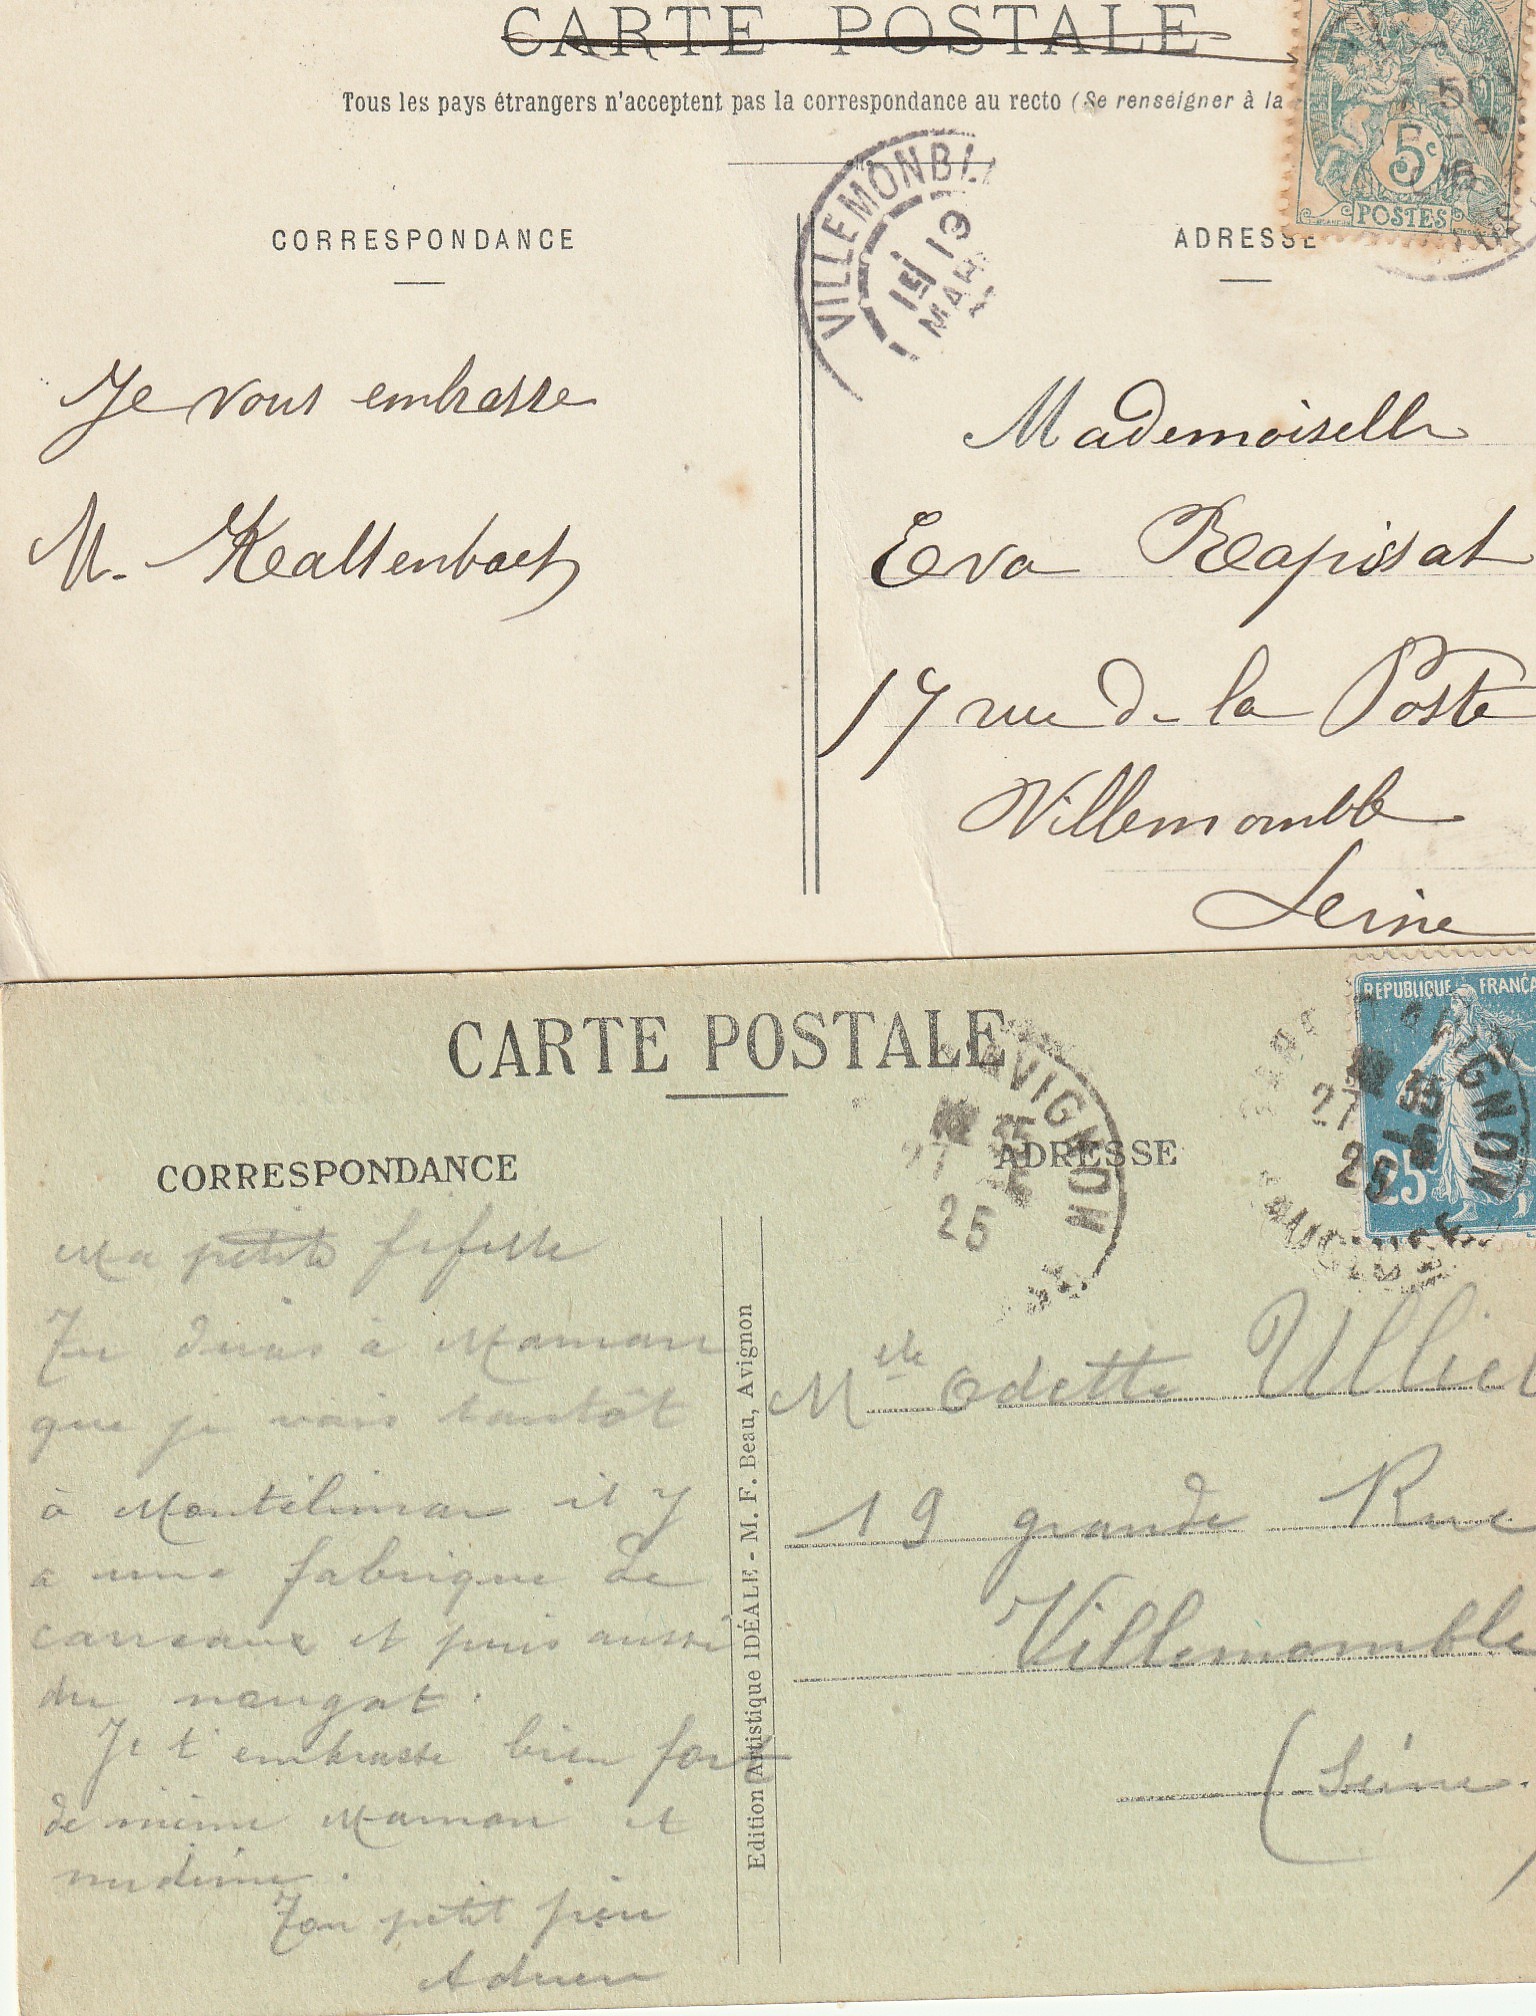 CARTE POSTALE
Tous les pays étrangers n'acceptent pas la correspondance au recto (Se renseigner à la
5c
POSTES
VILLEMONBL
13
MARS
CORRESPONDANCE
ADRESSE
Je vous embrasse
M. Kaltenbach
Mademoiselle
Eva Rapissat
17 rue de la Poste
Villemomble
Seine
CARTE POSTALE
REPUBLIQUE FRANÇA
25
AVIGNON
27
25
AVIGNON
27
25
VAUCLUSE
CORRESPONDANCE
ADRESSE
Ma petite fifille
Tu diras à Maman
que je vais tantôt
à Montélimar il y
a une fabrique de
carreaux et puis aussi
du nougat.
Je t'embrasse bien fort
de même Maman et
Ton petit père
Edition Artistique IDÉALE - M. F. Beau, Avignon
Melle Odette Ulliet
19 grande Rue
Villemomble
(Seine)